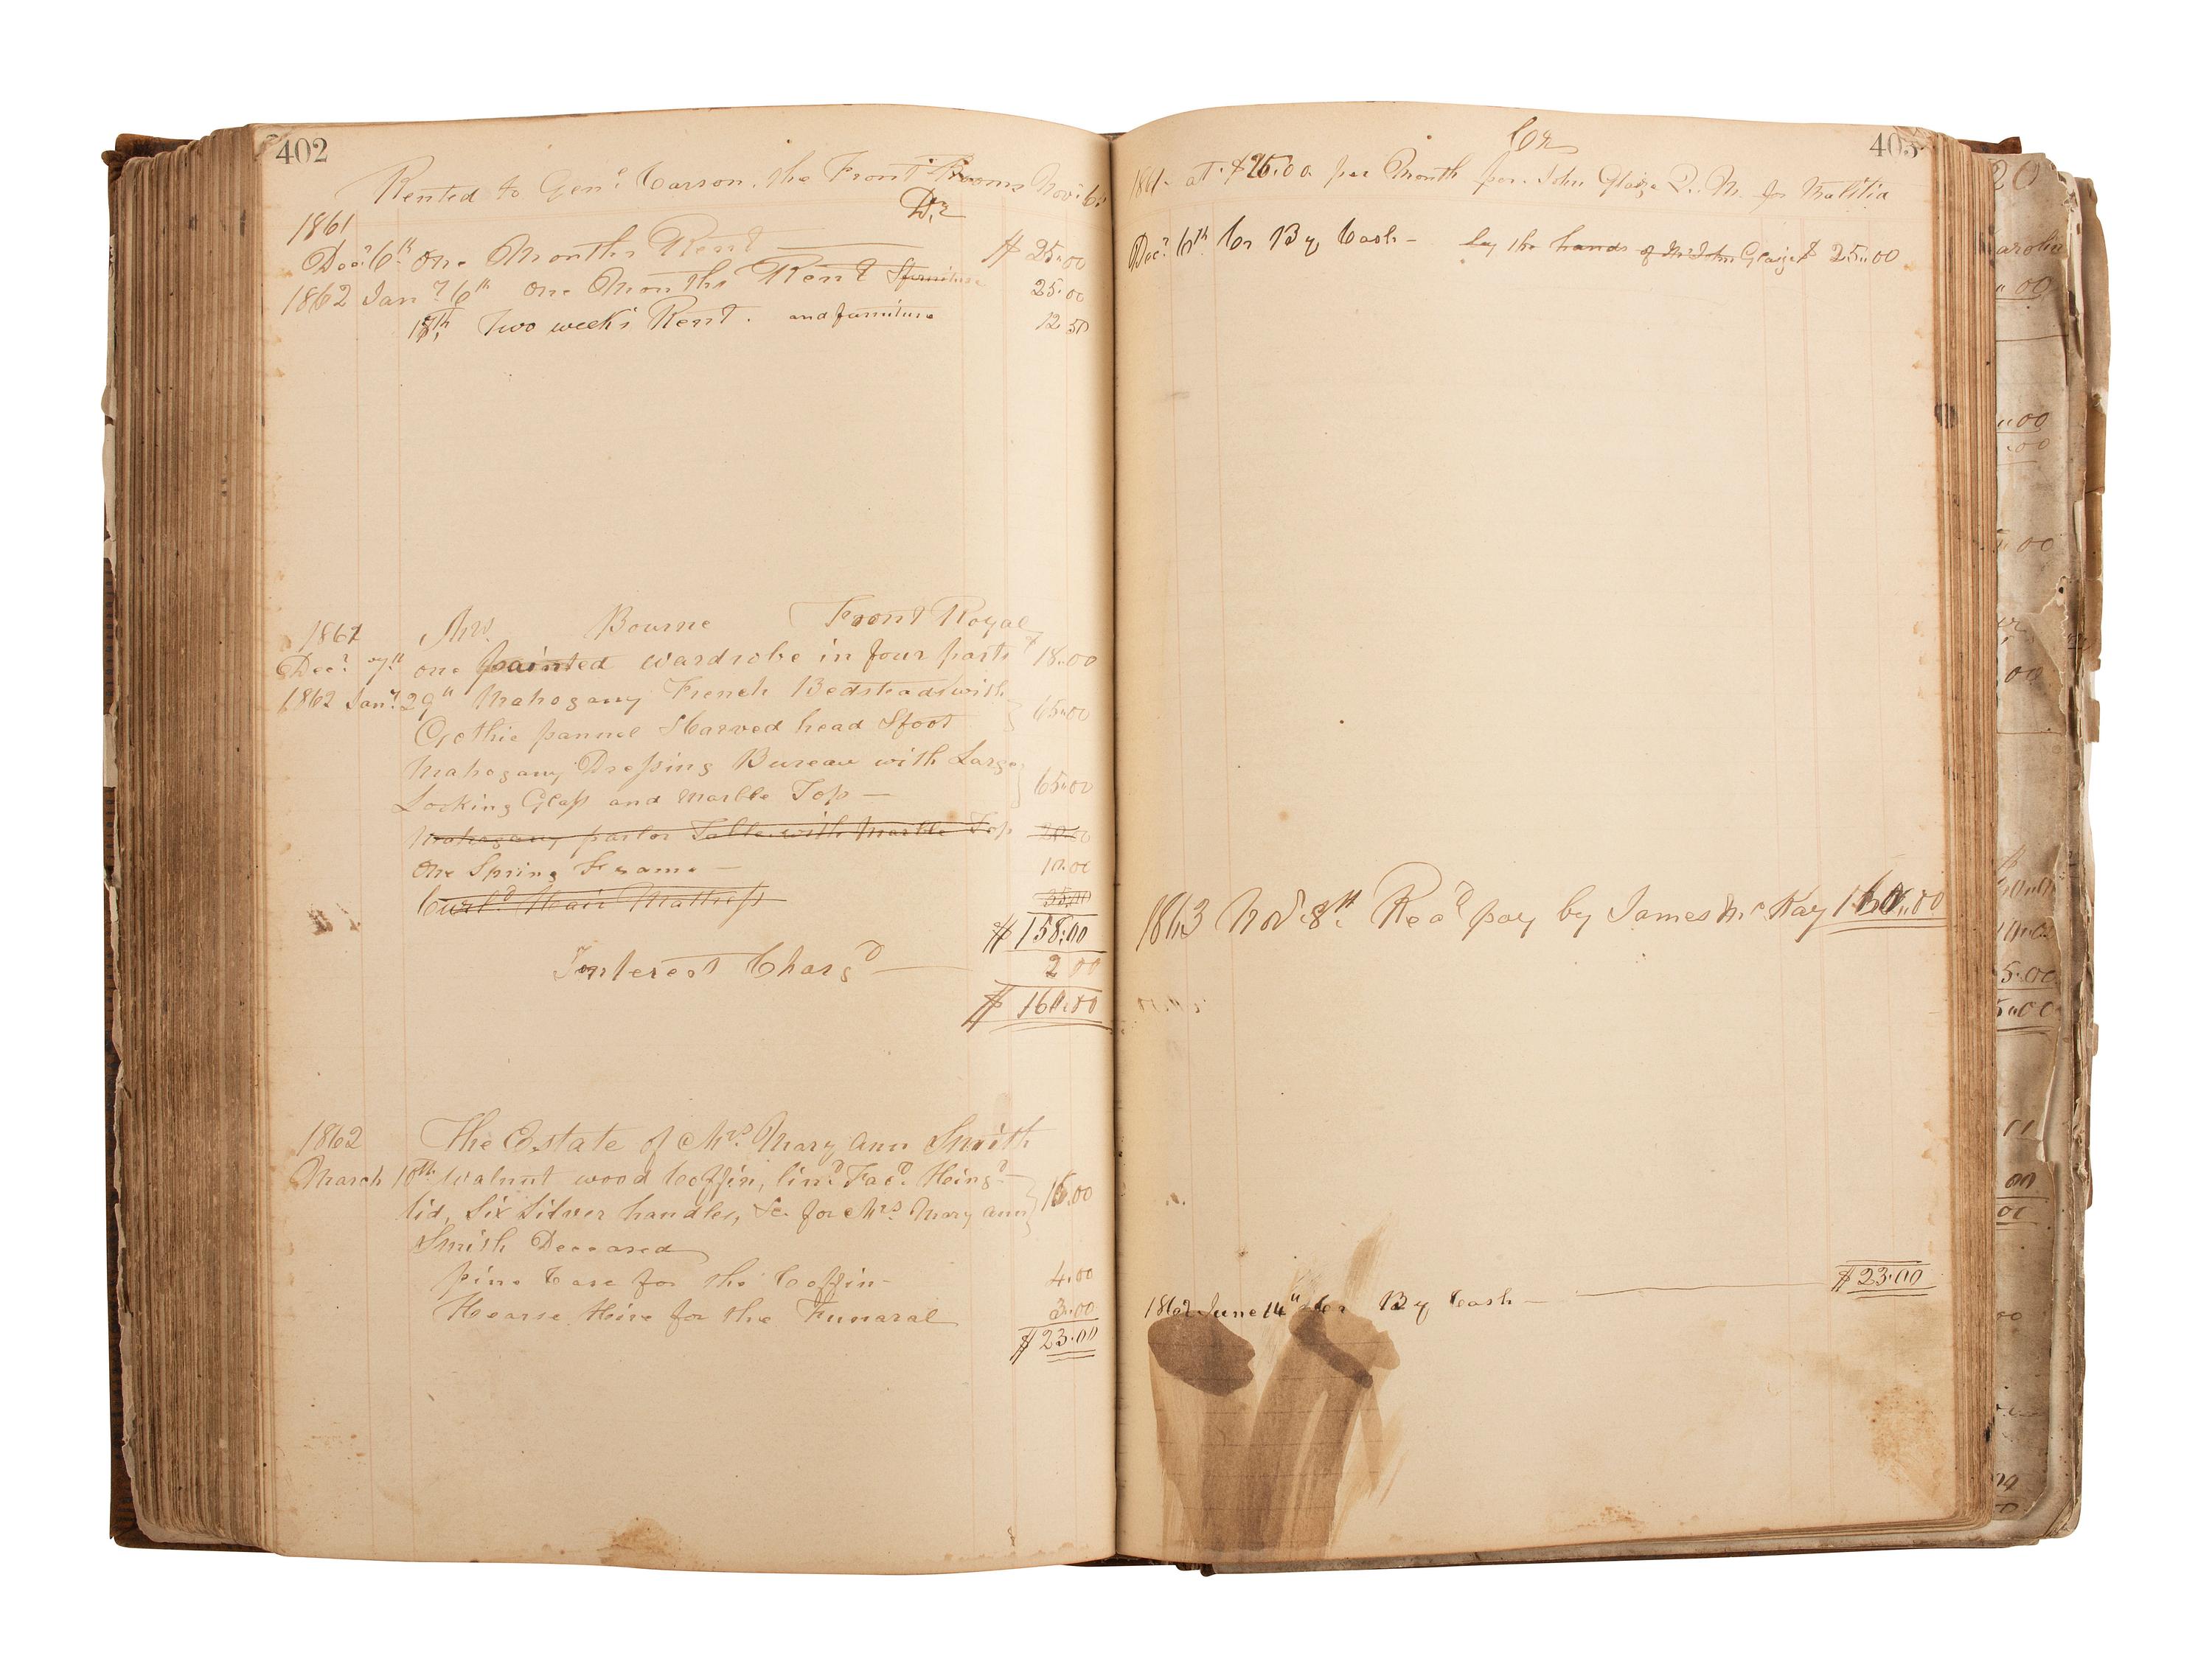 402
Rented to Genl. Carson. the Front Rooms Nov. 6th
Dr
1861
Decr. 6th. one Months Rent $ 25.00
1862 Jany. 6th one Months Rent & furniture 25.00
18th, Two weeks Rent. and furniture 12.50
1861 Mr. Bourne Front Royal
Decr. 7th one painted wardrobe in four parts $ 18.00
1862 Jany. 29" Mahogany French Bedstead with
Gothic pannel & Carved head & foot 65.00
Mahogany Dressing Bureau with Large
Looking Glass and Marble Top — 65.00
Mahogany parlor Table with Marble Top 20.00
One Spring Frame — 10.00
Curld. Hair Mattress 35.00
$ 158.00
Interest Chargd — 2 00
$ 160.00
1862 The Estate of Mrs. Mary Ann Smith
March 10th. Walnut wood Coffin, lind. Facd. Hingd.
lid, Six Silver handles, &c for Mrs. Mary Ann 16.00
Smith Deceased
pine Case for the Coffin — 4.00
Hearse Hire for the Funaral 3.00
$ 23.00
403
Cr
1861 - at $25.00 per Month for John Glaize Q. M. for Malitia
Decr. 6th Cr By Cash — by the hands of Mr John Glaize $ 25.00
1863 Nov. 8th. Recd pay by James McKay 160.00
$ 23.00
1862 June 14" Cr By Cash —